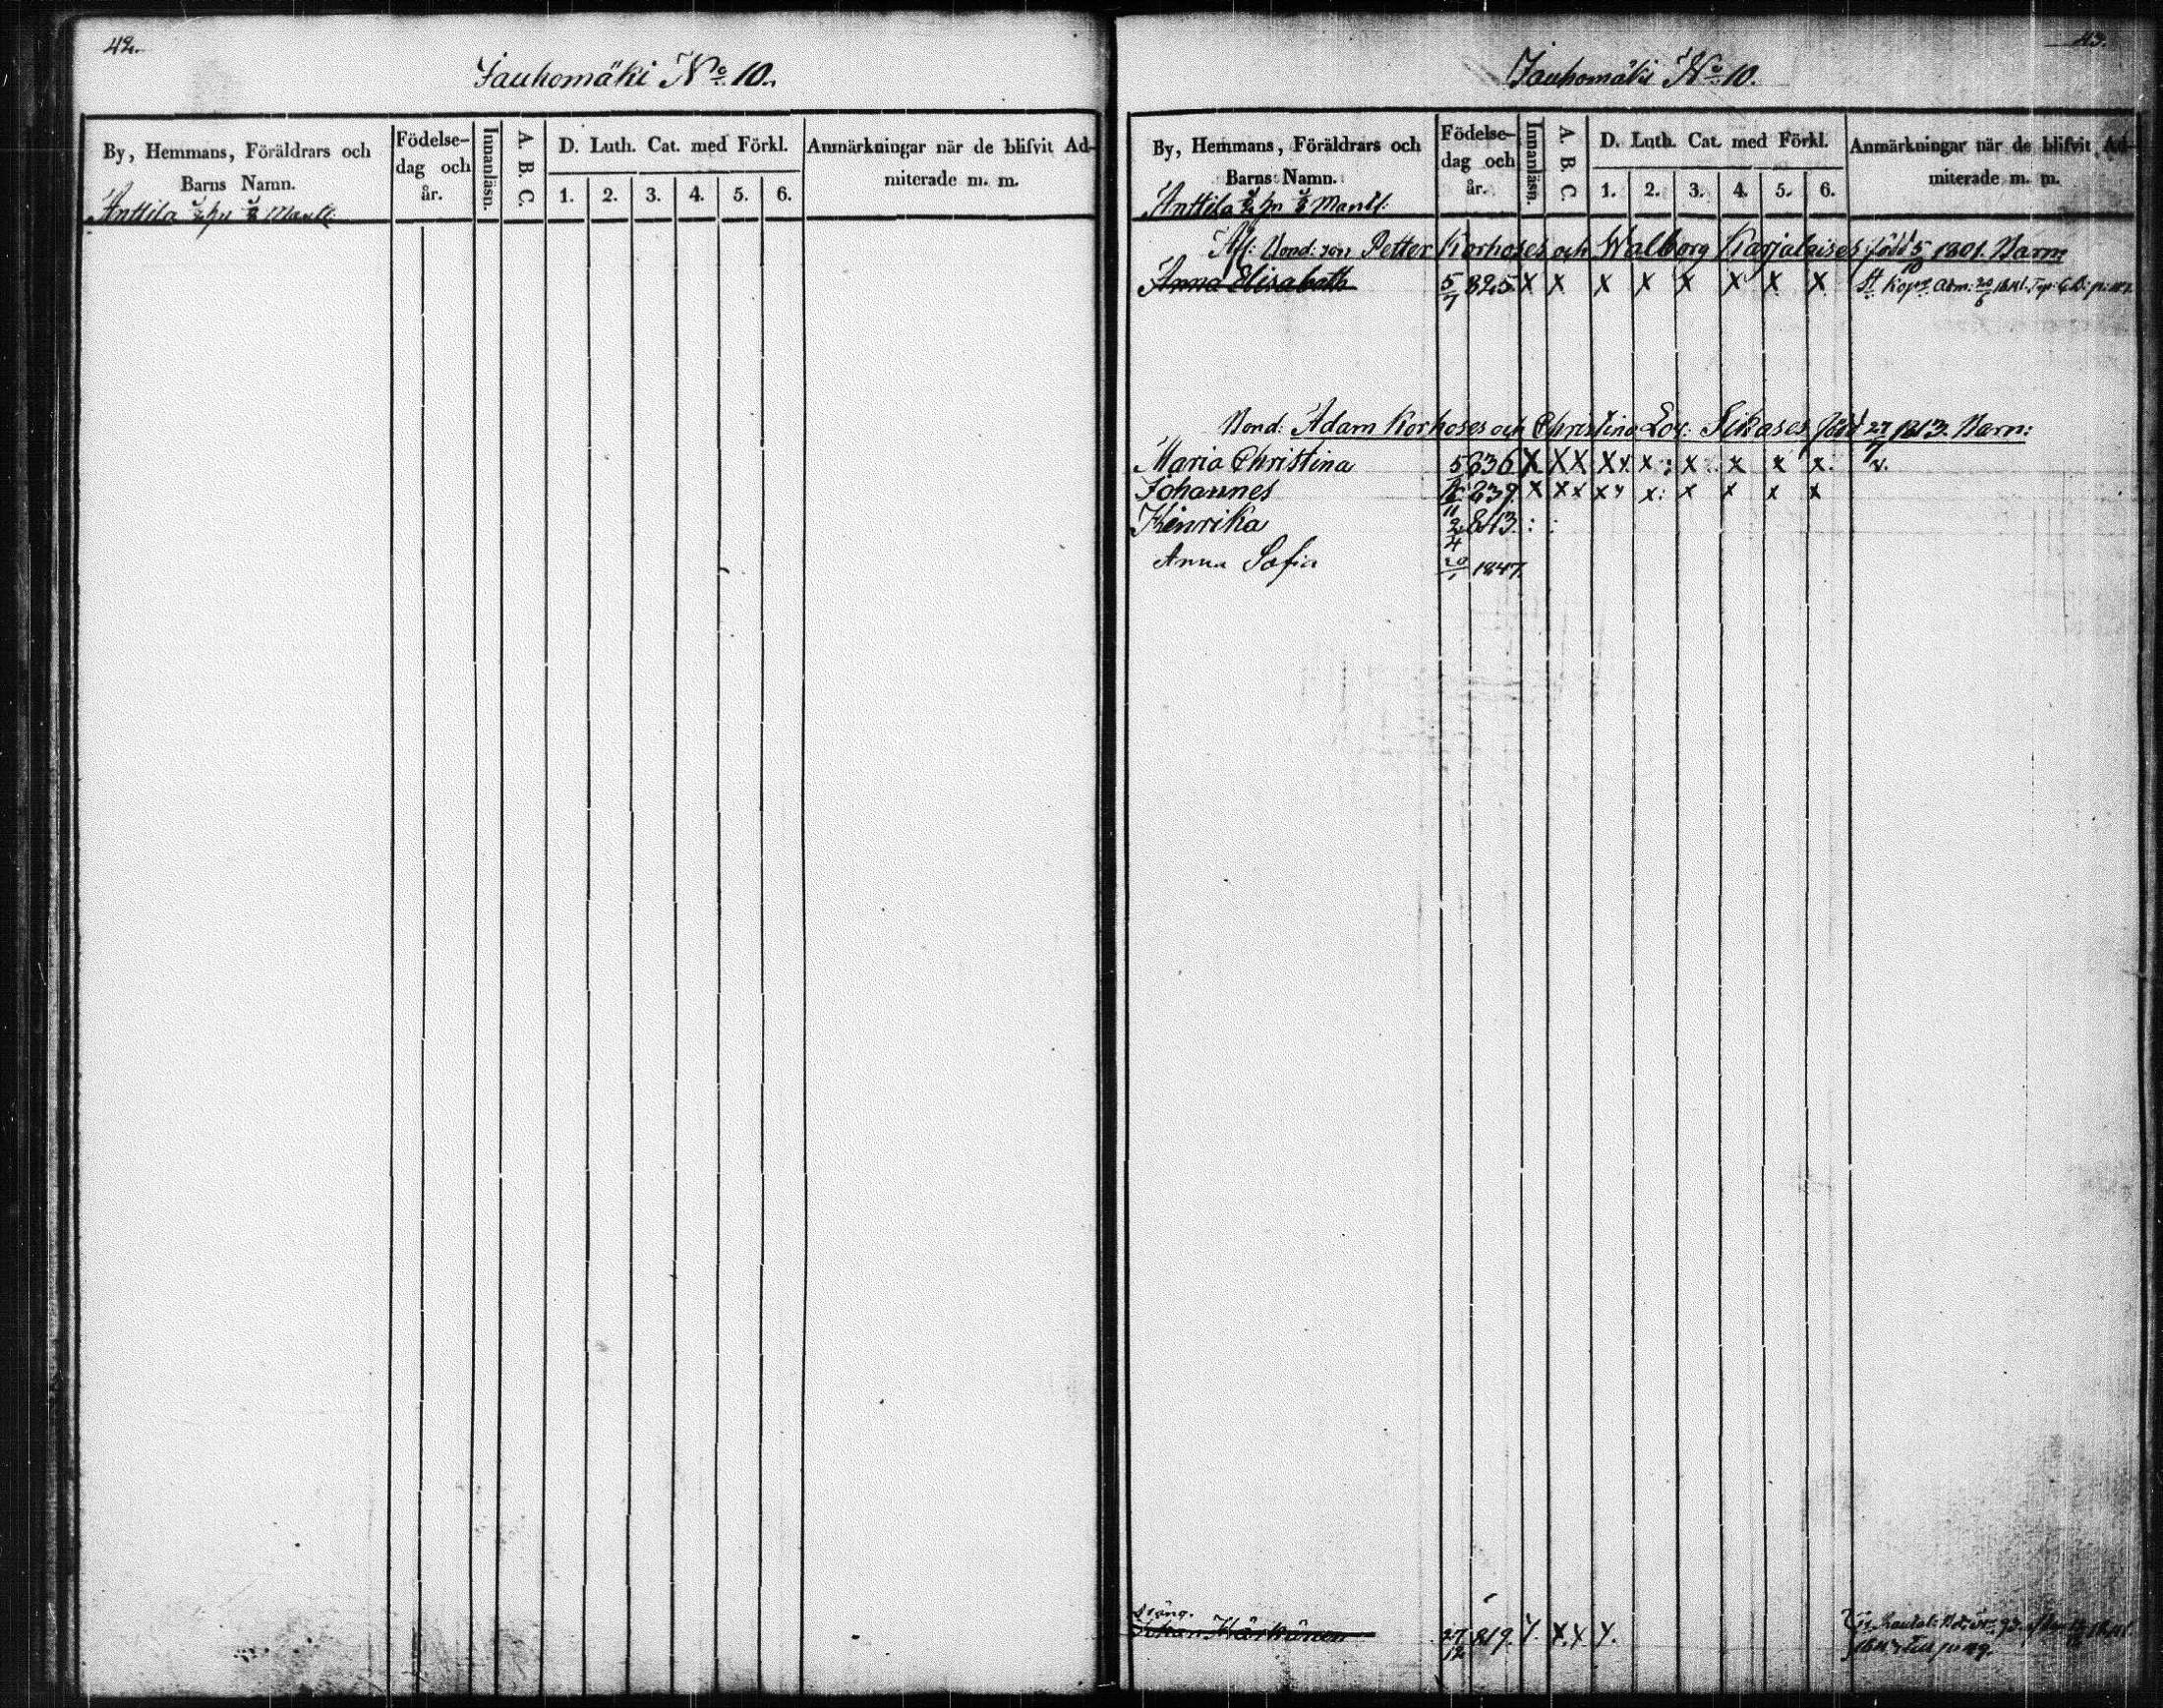 42.
Jauhomäki No 10.
By, Hemmans, Föräldrars och Barns Namn.
Födelse-dag och år.
Innanläsn.
A. B. C.
D. Luth. Cat. med Förkl.
1. 2. 3. 4. 5. 6.
Anmärkningar när de blifvit Admiterade m. m.
Anttila
43.
Jauhomäki No 10.
By, Hemmans, Föräldrars och Barns Namn.
Födelse-dag och år.
Innanläsn.
A. B. C.
D. Luth. Cat. med Förkl.
1. 2. 3. 4. 5. 6.
Anmärkningar när de blifvit Admiterade m. m.
Anttila Mantl:
Bond: son Petter Korhoses och Walborg Karjalaises född 5/10 1801. Barn
Anna Elisabeth 5/7 825 x x x x x x x x
Bond: Adam Korhoses och Christina Lov: Sikases född 27 1813. Barn:
Maria Christina 5 836 X XX Xx x: x x x x.
Johannes 839. x xx xx x: x x x x
Hinrika 2/4 843. : :
Anna Sofia 20/1 1847.
dräng.
Johan Kärkünen 27/12 819. x x.x x.